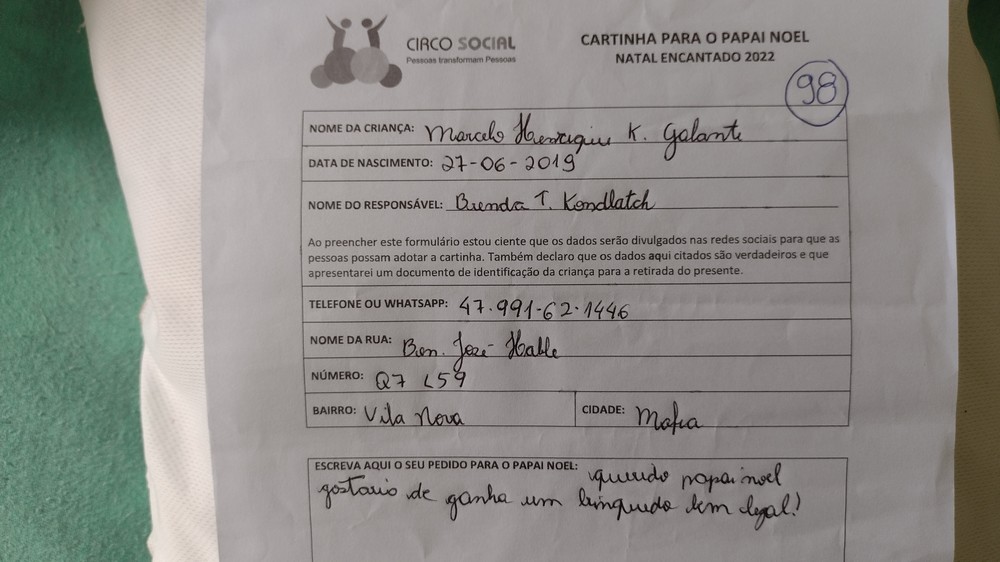 CIRCO SOCIAL
Pessoas transformam Pessoas
CARTINHA PARA O PAPAI NOEL
NATAL ENCANTADO 2022
98
NOME DA CRIANÇA: Marcelo Henrique K. Galante
DATA DE NASCIMENTO: 27-06-2019
NOME DO RESPONSÁVEL: Brenda T. Kondlatch
Ao preencher este formulário estou ciente que os dados serão divulgados nas redes sociais para que as
pessoas possam adotar a cartinha. Também declaro que os dados aqui citados são verdadeiros e que
apresentarei um documento de identificação da criança para a retirada do presente.
TELEFONE OU WHATSAPP: 47.991-62.1446
NOME DA RUA: José
NÚMERO: Q7 L59
BAIRRO: Vila Nova
CIDADE: Mafra
ESCREVA AQUI O SEU PEDIDO PARA O PAPAI NOEL: querido papai noel
gostario de ganha um brinquedo bem legal!